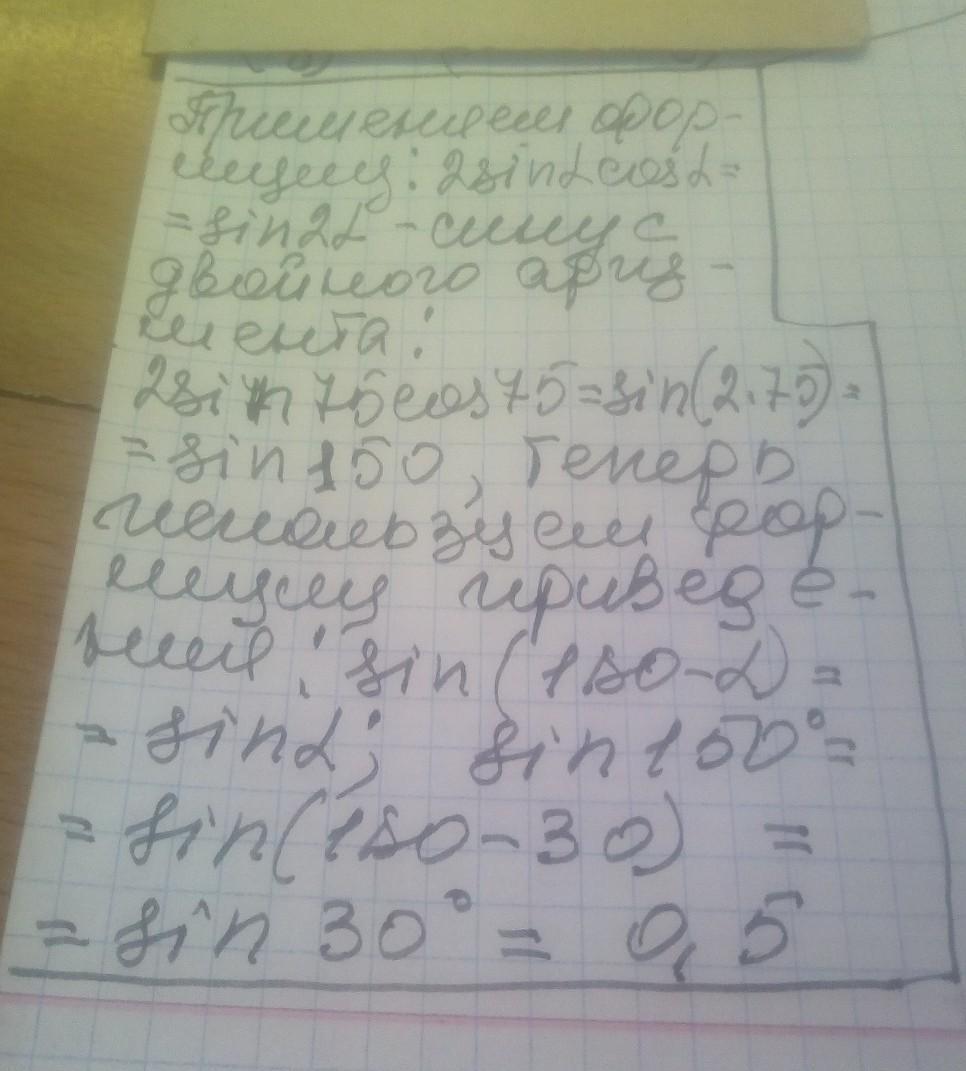 Применяем фор-
мулу: 2sinαcosα=
=sin2α - синус
двойного аргу-
мента:
2sin75cos75=sin(2·75)=
=sin150, теперь
используем фор-
мулу приведе-
ния: sin(180-α)=
=sinα; sin150°=
=sin(180-30)=
=sin30°=0,5